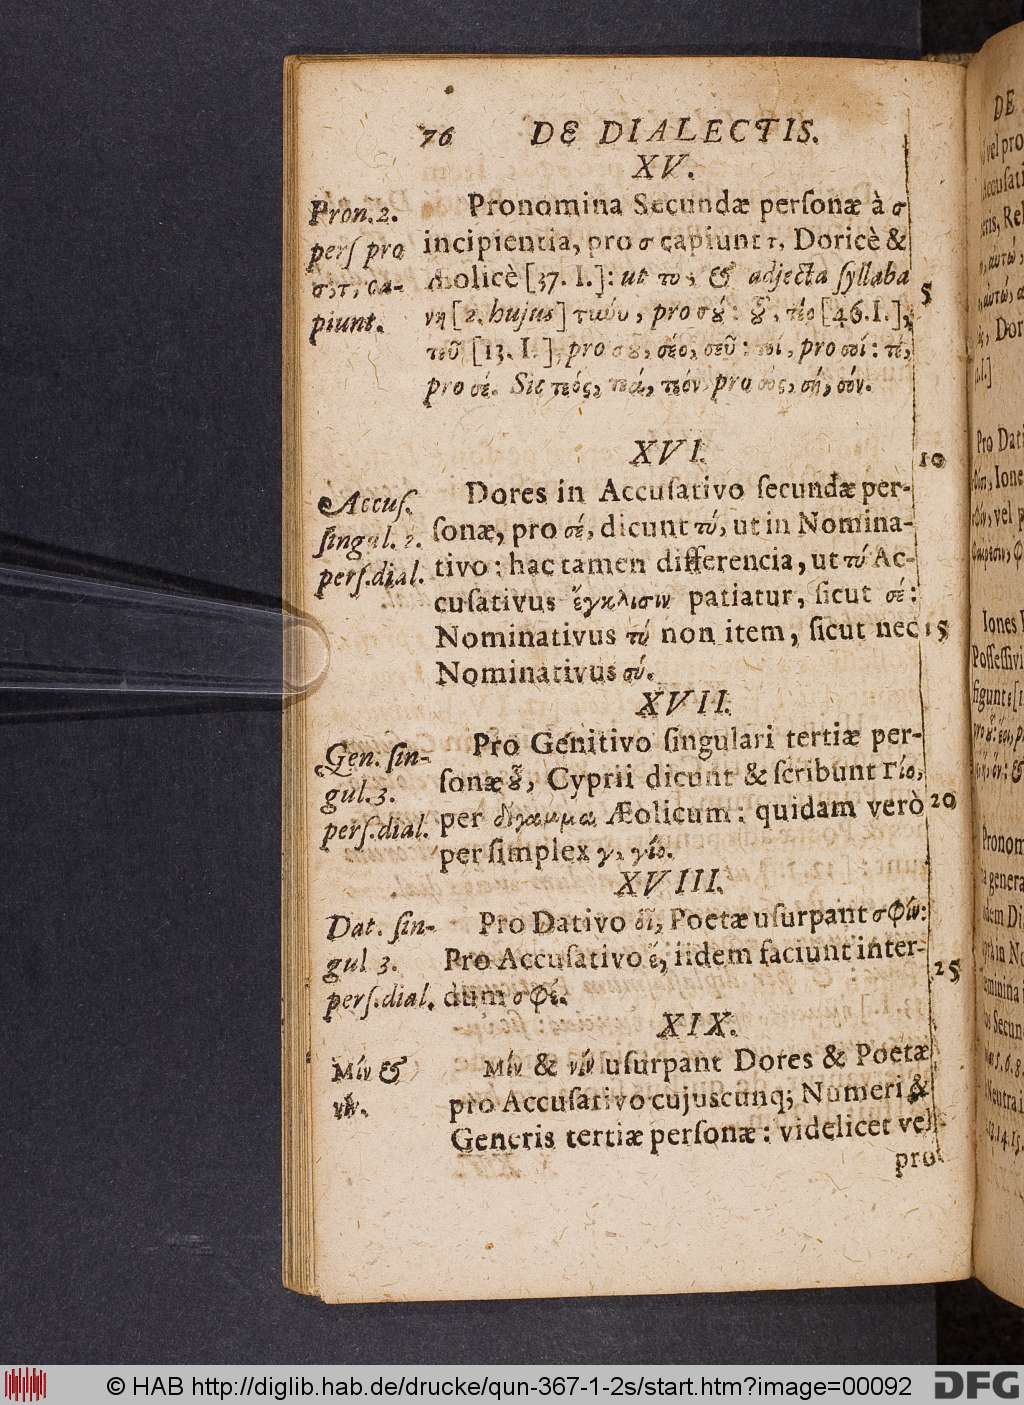 76 DE DIALECTIS.
XV.
Pron. 2.
perſ pro
σ, τ, ca-
piunt.
Pronomina Secundæ perſonæ à σ
incipientia, pro σ capiunt τ, Doricè &
Æolicè [37. I.]: ut τυ, & adjecta ſyllaba
νη [2. hujus] τύνη, pro σύ: οὗ, τέο [46. I.],
τεῦ [13. I.], pro σοῦ, σέο, σεῦ: τοί, pro σοί: τέ,
pro σέ. Sic τεός, τεά, τεόν pro σός, σή, σόν.
5
XVI.
10
Accuſ.
ſingul. 2.
perſ. dial.
Dores in Accuſativo ſecundæ per-
ſonæ, pro σέ, dicunt τύ, ut in Nomina-
tivo: hac tamen differencia, ut τύ Ac-
cuſativus ἔγκλισιν patiatur, ſicut σέ:
Nominativus τύ non item, ſicut nec
15
Nominativus σύ.
XVII.
Gen. ſin-
gul. 3.
perſ. dial.
Pro Genitivo ſingulari tertiæ per-
ſonæ οὗ, Cyprii dicunt & ſcribunt Γίο,
per δίγαμμα Æolicum: quidam verò
20
per ſimplex γ, γίο.
XVIII.
Dat. ſin-
gul 3.
perſ. dial.
Pro Dativo οἷ, Poetæ uſurpant σφίν:
Pro Accuſativo ἕ, iidem faciunt inter-
25
dum σφέ.
XIX.
Μίν &
νίν.
Μίν & νίν uſurpant Dores & Poetæ
pro Accuſativo cujuscunq; Numeri &
Generis tertiæ perſonæ: videlicet vel
pro
© HAB http://diglib.hab.de/drucke/qun-367-1-2s/start.htm?image=00092
DFG